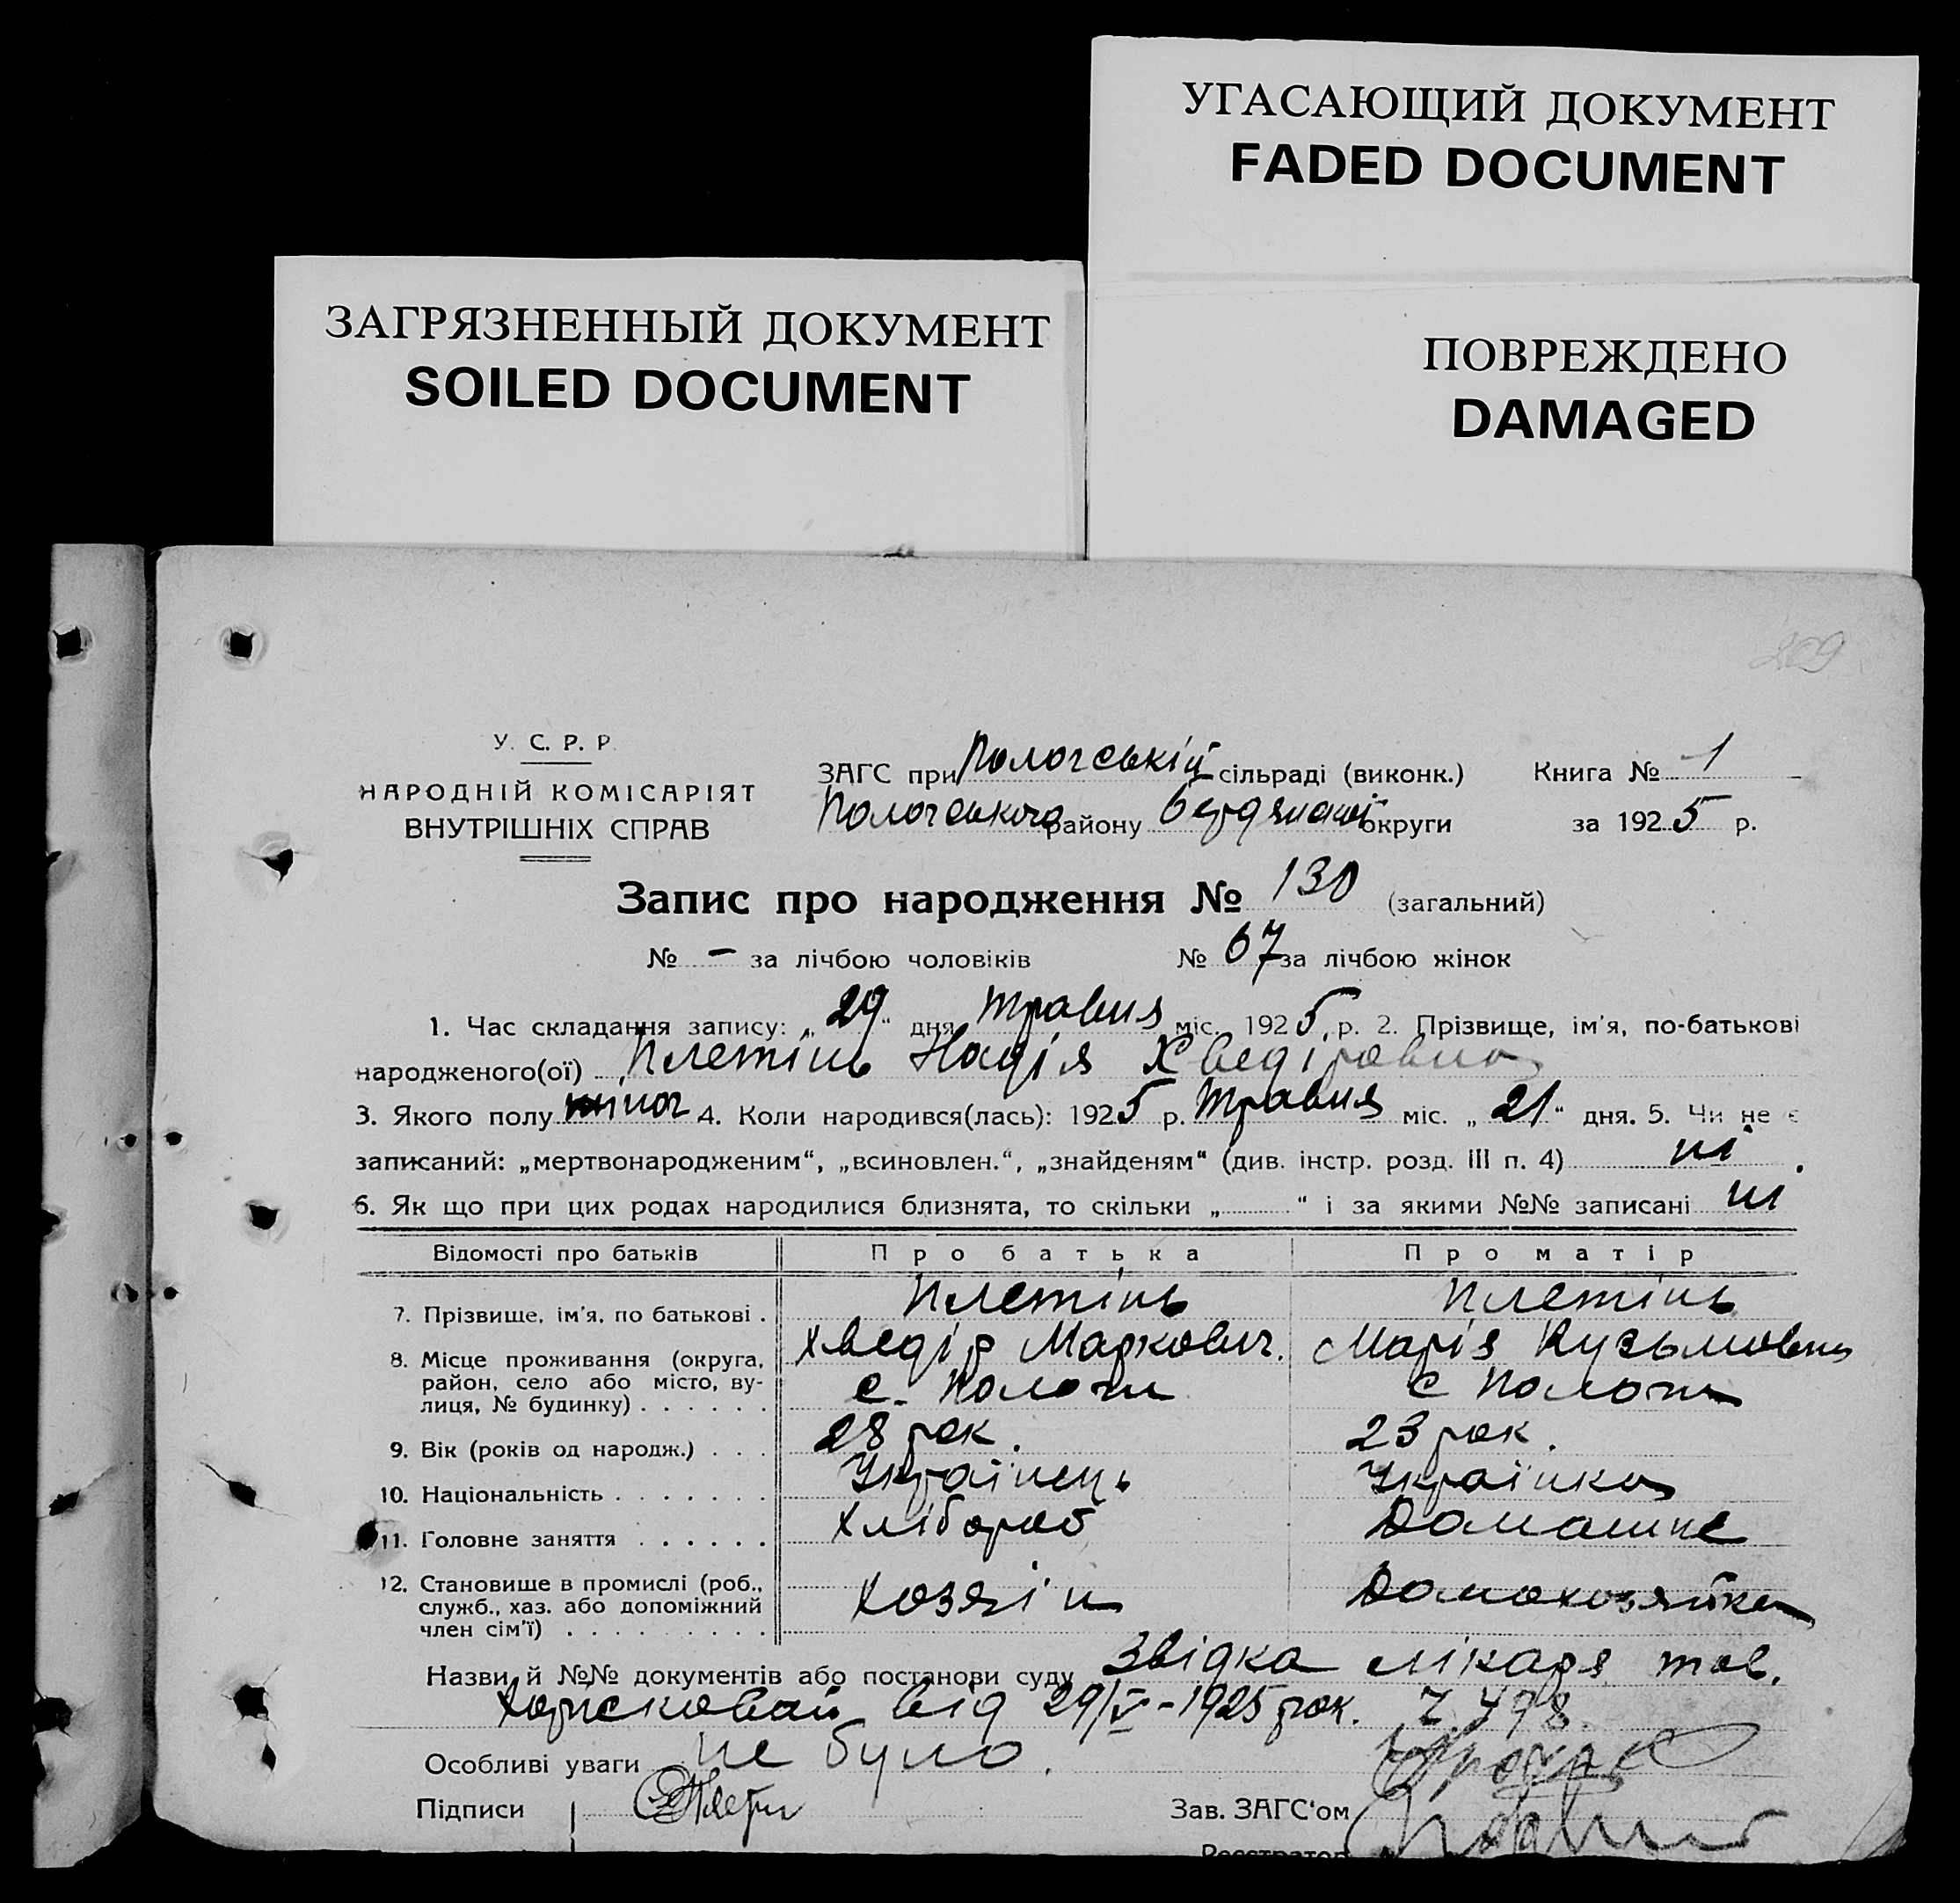 УГАСАЮЩИЙ ДОКУМЕНТ
FADED DOCUMENT
ЗАГРЯЗНЕННЫЙ ДОКУМЕНТ
SOILED DOCUMENT
ПОВРЕЖДЕНО
DAMAGED
209
У. С. Р. Р.
НАРОДНІЙ КОМІСАРІЯТ
ВНУТРІШНІХ СПРАВ
ЗАГС при Пологській сільраді (виконк.) Книга № 1
Пологського району Бердянської округи за 1925 р.
Запис про народження № 130 (загальний)
№ – за лічбою чоловіків № 67 за лічбою жінок
1. Час складання запису: „29“ дня травня міс. 1925 р. 2. Прізвище, ім'я, по-батькові
народженого(ої) Плетінь Надія Хведіровна
3. Якого полу жіноч 4. Коли народився(лась): 1925 р. травня міс. „21“ дня. 5. Чи не є
записаний: „мертвонародженим“, „всиновлен.“, „знайденям“ (див. інстр. розд. III п. 4) ні.
6. Як що при цих родах народилися близнята, то скільки „ “ і за якими №№ записані ні
Відомості про батьків Про батька Про матір
7. Прізвище, ім'я, по батькові . Плетінь Плетінь
Хведір Маркович. Марія Кузьмовна
8. Місце проживання (округа,
район, село або місто, ву-
лиця, № будинку) . . . . . . с. Пологи с Пологи
9. Вік (років од народж.) . . . 28 рок. 23 рок.
10. Національність . . . . . . . Українець Українка
11. Головне заняття . . . . . . Хлібороб Домашнє
12. Становище в промислі (роб.,
служб., хаз. або допоміжний
член сім'ї) . . . . . . . . . Хозяїн Домохозяйка
Назви й №№ документів або постанови суду Звідка лікаря тов.
від 29/V-1925 рок. 498.
Особливі уваги не було.
Підписи
Зав. ЗАГС'ом
Реєстратор